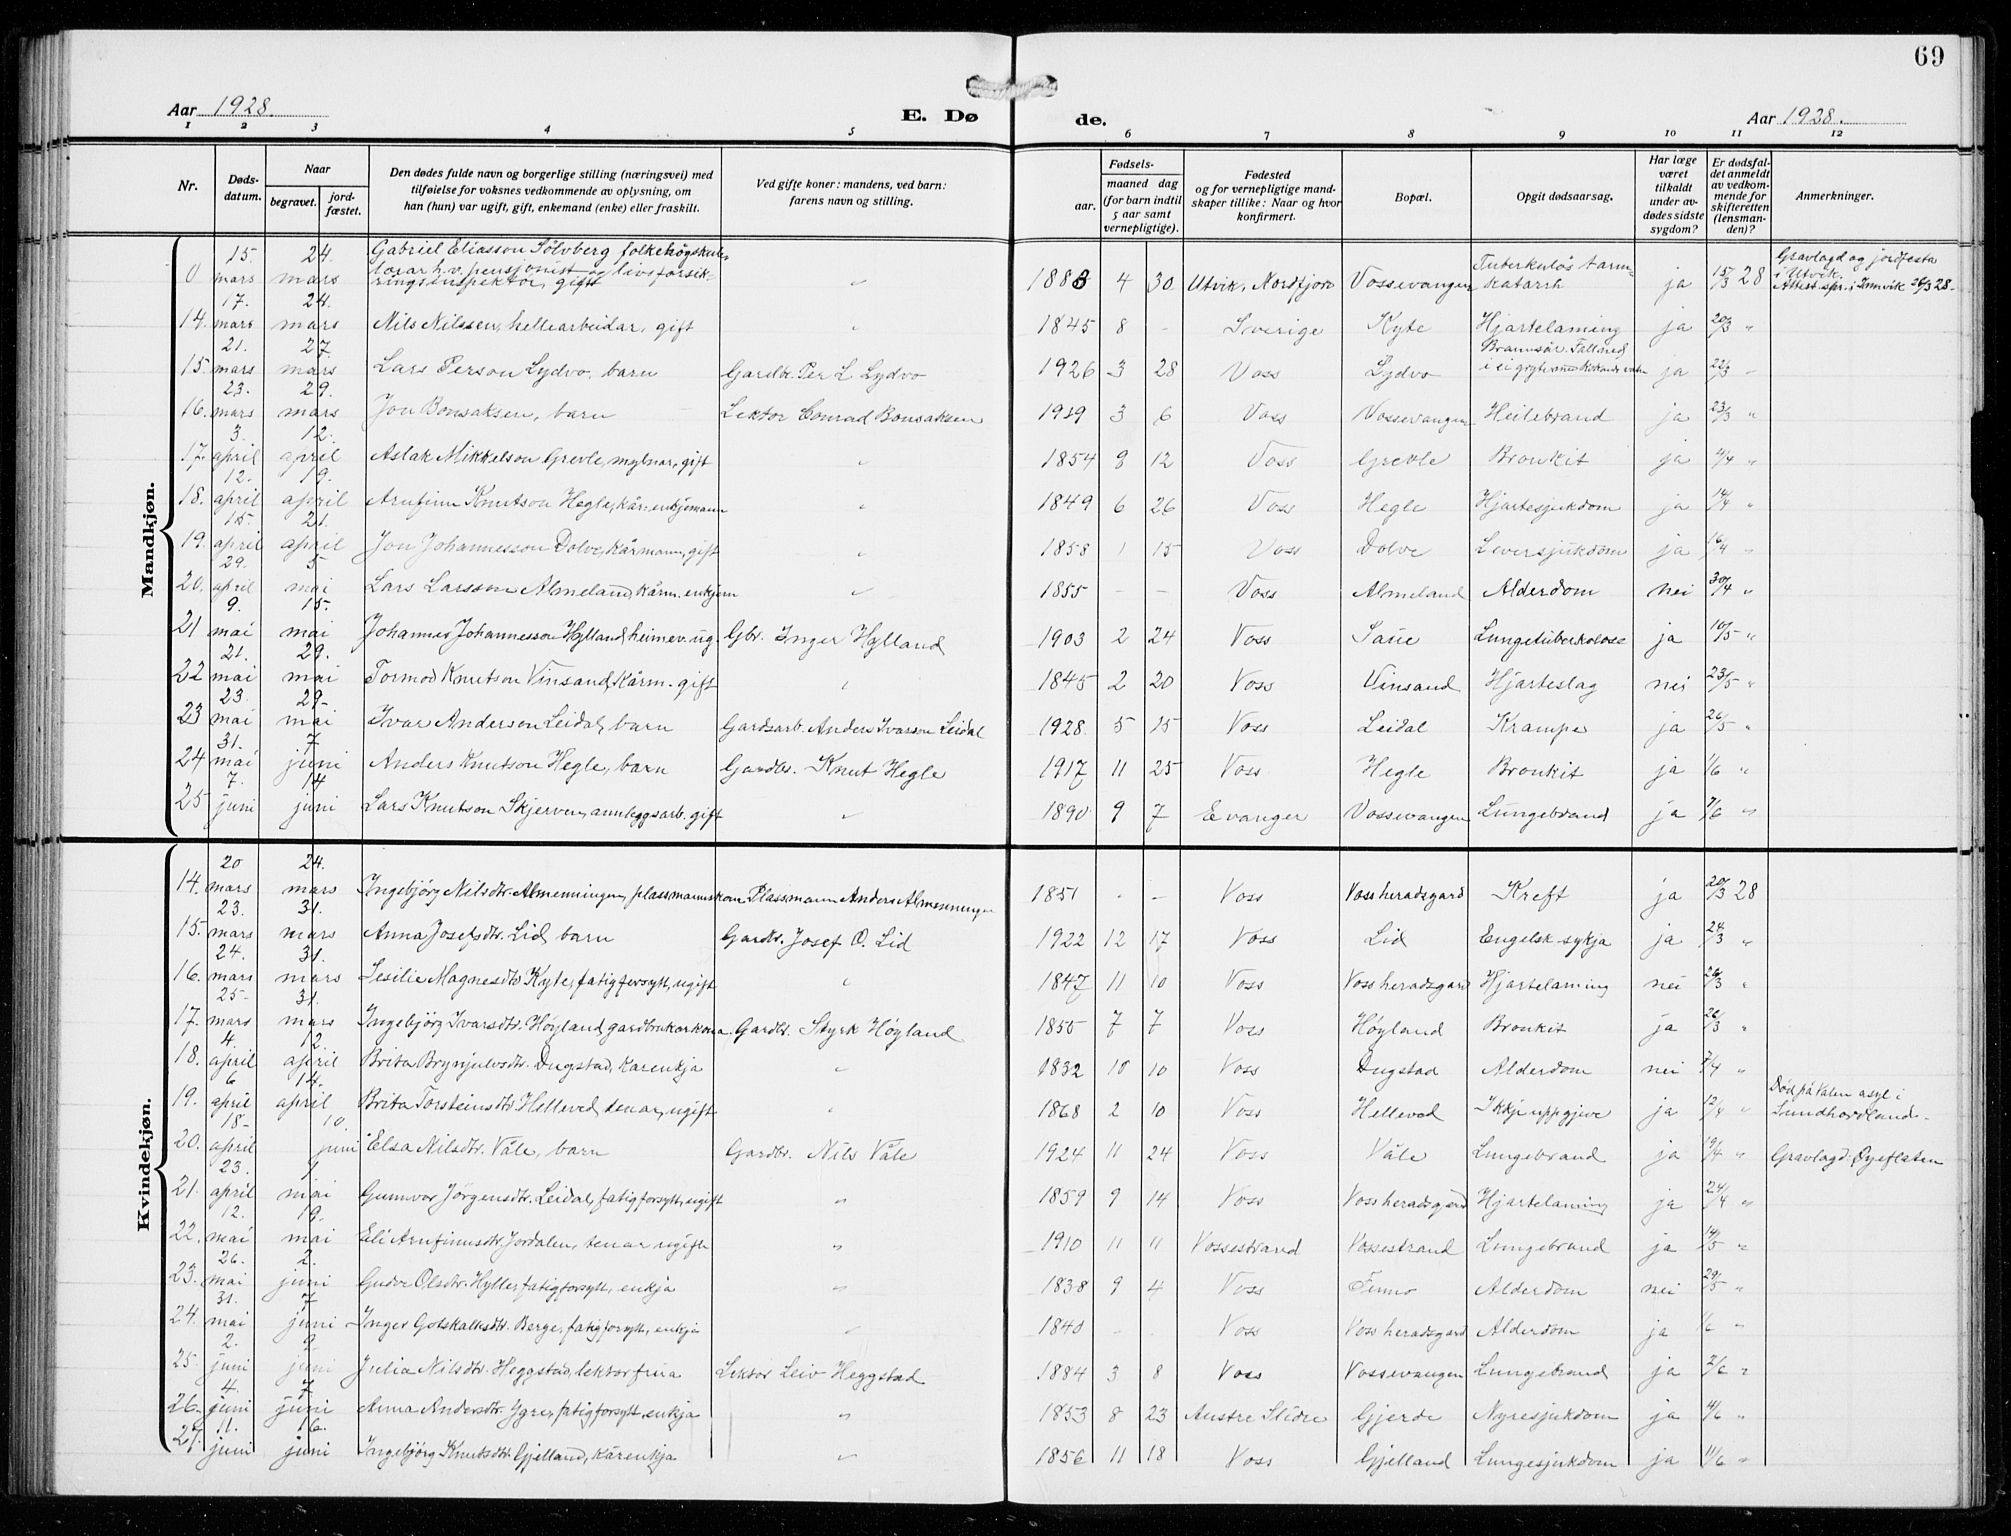 69
Aar 1928.
E. Døde.
Aar 1928.
1 2 3 4 5 6 7 8 9 10 11 12
Nr.
Døds-datum.
Naar
begravet.
jord-fæstet.
Den dødes fulde navn og borgerlige stilling (næringsvei) med
tilføielse for voksnes vedkommende av oplysning, om
han (hun) var ugift, gift, enkemand (enke) eller fraskilt.
Ved gifte koner: mandens, ved barn:
farens navn og stilling.
Fødsels-
aar.
maaned dag
(for barn indtil
5 aar samt
vernepligtige).
Fødested
og for vernepligtige mand-
skaper tillike: Naar og hvor
konfirmert.
Bopæl.
Opgit dødsaarsag.
Har læge
været
tilkaldt
under av-
dødes sidste
sygdom?
Er dødsfal-
det anmeldt
av vedkom-
mende for
skifteretten
(lensman-
den)?
Anmerkninger.
Mandkjøn.
0 15. mars 24. mars Gabriel Eliasson Sølvberg folkehøgskule-
lærar h.v. pensjonist og livsforsik-
ringsinspektør, gift " 1883 4 30 Utvik, Nordfjord Vossevangen Tuberkuløs tarm-
katarrh ja 15/3 28 Gravlagd og jordfesta
i Utvik.
Attest spr. i Innvik 26/3 28.
14. 17. mars 24. mars Nils Nilssen, hellearbeidar, gift " 1845 8 - Sverige Kyte Hjartelaming ja 20/3 "
15. 21. mars 27. mars Lars Person Lydvo, barn Gardbr. Per L. Lydvo 1926 3 28 Voss Lydvo Brannsår. Fall ned
i ei gryte med kokande vatn ja 22/3 "
16. 23. mars 29. mars Jon Bonsaksen, barn Lektor Conrad Bonsaksen 1919 3 6 Voss Vossevangen Heilebrand ja 23/3 "
17. 3. april 12. april Aslak Mikkelson Grevle, mylnar, gift " 1854 8 12 Voss Grevle Bronkit ja 4/4 "
18. 12. april 19. april Arnfinn Knutson Hegle, kår: enkjemann " 1849 6 26 Voss Hegle Hjartesjukdom ja 14/4 "
19. 15. april 21. april Jon Johannesson Dolve, kårmann, gift " 1858 1 15 Voss Dolve Leversjukdom ja 16/4 "
20. 29. april 5 mai Lars Larsson Almeland, kårm. enkjem " 1855 - - Voss Almeland Alderdom nei 30/4 "
21 9. mai 15. mai Johannes Johannesson Hylland, heimev. ug. Gbr. Inger Hylland 1903 2 24 Voss Saue Lungetuberkulose ja 10/5 "
22 21. mai 29. mai Tormod Knutson Vinsand, kårm. gift " 1845 2 20 Voss Vinsand Hjarteslag nei 23/5 "
23 23. mai 29. mai Ivar Anderson Leidal, barn Gardsarb. Anders Ivarson Leidal 1928. 5 15 Voss Leidal Krampe ja 26/5 "
24 31. mai 7 juni Anders Knutson Hegle, barn Gardbr. Knut Hegle 1917 11 25 Voss Hegle Bronkit ja 1/6 "
25 7. juni 14 juni Lars Knutson Skjerven, annleggsarb. gift " 1890 9 7 Evanger Vossevangen Lungebrand ja 7/6 "
Kvindekjøn.
14. 20 mars 24. mars Ingebjørg Nilsdtr. Almenningen, plassmannskona Plassmann Anders Almenningen 1851 - - Voss Voss heradsgard Kreft ja 20/3 28
15. 23. mars 31. mars Anna Josefsdtr. Lid, barn Gardbr. Josef O. Lid 1922 12 17 Voss Lid Engelsk sykja ja 24/3 "
16. 24. mars 31. mars Sesilie Magnesdtr Kyte, fatigforsytt, ugift " 1847 11 10 Voss Voss heradsgard Hjartelaming nei 26/3 "
17. 25. mars 31. mars Ingebjørg Ivarsdtr. Høyland gardbrukarkona Gardbr. Styrk Høyland 1855 7 7 Voss Høyland Bronkit ja 26/3 "
18. 4. april 12. april Brita Brynjulvsdtr. Dugstad, kårenkja " 1832 10 10 Voss Dugstad Alderdom nei 7/4 "
19. 6 april 14. april Brita Torsteinsdtr. Helleved, tenar, ugift " 1868 2 10 Voss Helleved Ikkje uppgjeve ja 12/4 " Død på Valen asyl i
Sundhordland.
20. 18. april 10. juni Elsa Nilsdtr. Våle, barn Gardbr. Nils Våle 1924 11 24 Voss Våle Lungebrand ja 19/4 " Gravlagd: Øyeflaten
21. 23. april 1 mai Gunnvor Jørgensdtr. Leidal, fatigforsytt, ugift " 1859 9 14 Voss Voss heradsgard Hjartelaming ja 24/4 "
22. 12. mai 19. mai Eli Arnfinnsdtr. Jordalen, tenar ugift " 1910 11 11 Vossestrand Vossestrand Lungebrand ja 14/5 "
23. 26. mai 2. juni Gudve Olsdtr. Hylle, fatigforsytt, enkja " 1838 9 4 Voss Finno Alderdom nei 29/5 "
24. 31. mai 7 juni Inger Gotskalksdtr. Berge, fatigforsytt, enkja " 1840 - - Voss Voss heradsgard Alderdom ja 1/6 "
25. 2. juni 9 juni Julia Nilsdtr. Heggstad, lektorfrua Lektor Leiv Heggstad 1884 3 8 Voss Vossevangen Lungebrand ja 2/6 "
26. 4. juni 7 juni Anna Andersdtr. Ygre, fatigforsytt enkja " 1853 8 23 Austre Slidre Gjerde Nyresjukdom ja 4/6 "
27. 11. juni 16. juni Ingebjørg Knutsdtr. Gjelland, kårenkja " 1856 11 18 Voss Gjelland Lungesjukdom ja 11/6 "